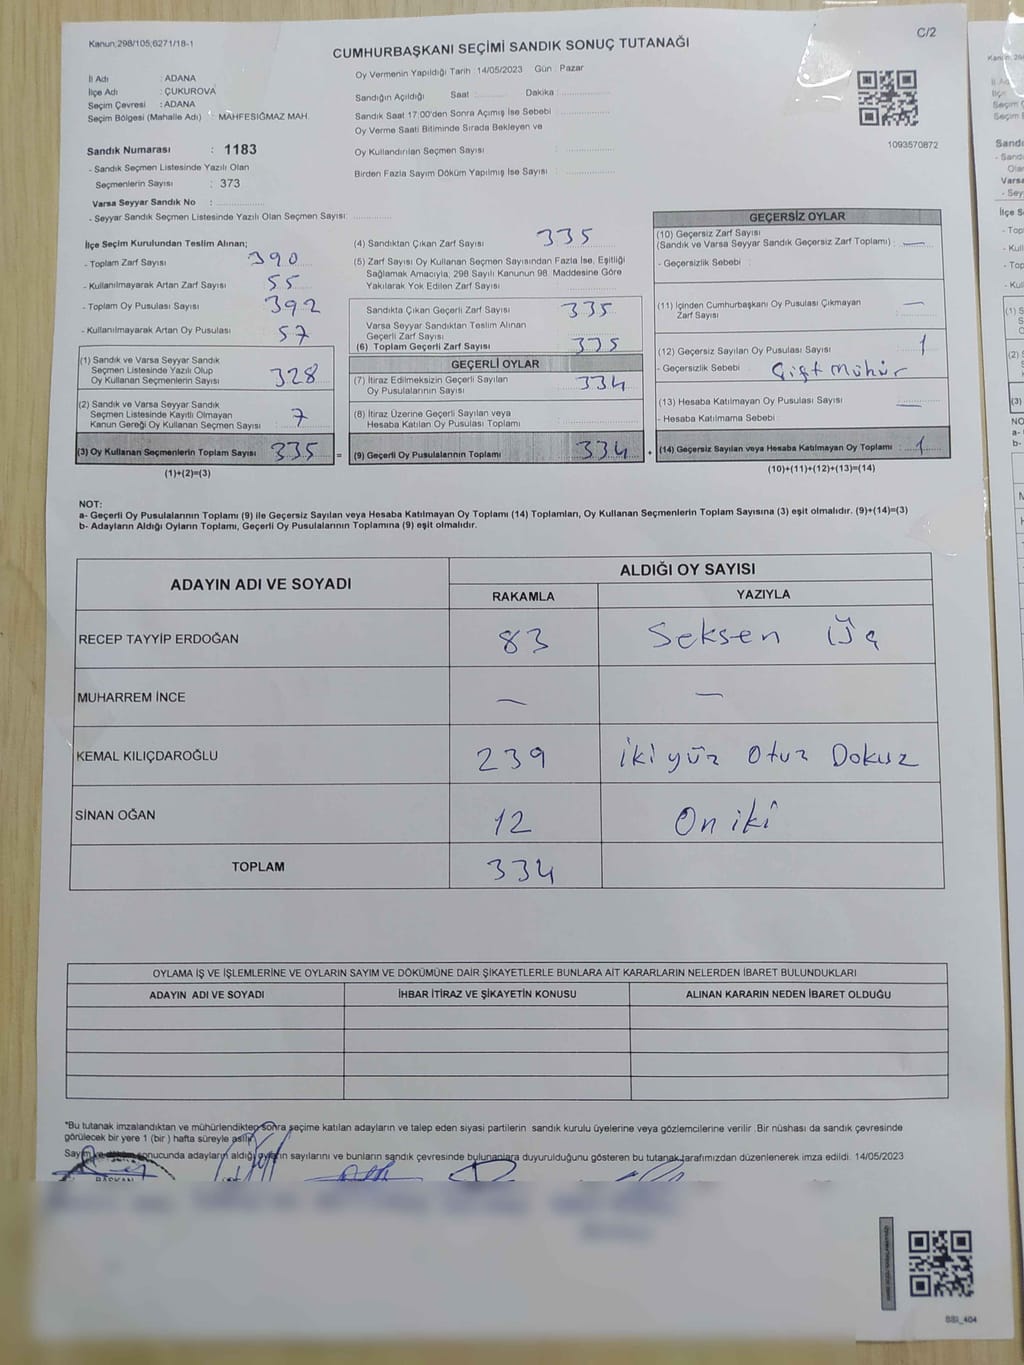 Kanun;298/105;6271/18-1
C/2
CUMHURBAŞKANI SEÇİMİ SANDIK SONUÇ TUTANAĞI
İl Adı : ADANA
İlçe Adı : ÇUKUROVA
Seçim Çevresi : ADANA
Seçim Bölgesi (Mahalle Adı) : MAHFESIĞMAZ MAH.
Sandık Numarası : 1183
- Sandık Seçmen Listesinde Yazılı Olan
Seçmenlerin Sayısı : 373
Varsa Seyyar Sandık No :
- Seyyar Sandık Seçmen Listesinde Yazılı Olan Seçmen Sayısı:
Oy Vermenin Yapıldığı Tarih :14/05/2023 Gün : Pazar
Sandığın Açıldığı Saat : Dakika :
Sandık Saat 17:00'den Sonra Açımış İse Sebebi :
Oy Verme Saati Bitiminde Sırada Bekleyen ve
Oy Kullandırılan Seçmen Sayısı :
Birden Fazla Sayım Döküm Yapılmış İse Sayısı :
1093570872
İlçe Seçim Kurulundan Teslim Alınan;
- Toplam Zarf Sayısı : 390
- Kullanılmayarak Artan Zarf Sayısı : 55
- Toplam Oy Pusulası Sayısı : 392
- Kullanılmayarak Artan Oy Pusulası : 57
(1) Sandık ve Varsa Seyyar Sandık
Seçmen Listesinde Yazılı Olup
Oy Kullanan Seçmenlerin Sayısı : 328
(2) Sandık ve Varsa Seyyar Sandık
Seçmen Listesinde Kayıtlı Olmayan
Kanun Gereği Oy Kullanan Seçmen Sayısı : 7
(3) Oy Kullanan Seçmenlerin Toplam Sayısı : 335 =
(1)+(2)=(3)
(4) Sandıktan Çıkan Zarf Sayısı : 335
(5) Zarf Sayısı Oy Kullanan Seçmen Sayısından Fazla İse, Eşitliği
Sağlamak Amacıyla, 298 Sayılı Kanunun 98. Maddesine Göre
Yakılarak Yok Edilen Zarf Sayısı :
Sandıkta Çıkan Geçerli Zarf Sayısı : 335
Varsa Seyyar Sandıktan Teslim Alınan
Geçerli Zarf Sayısı :
(6) Toplam Geçerli Zarf Sayısı : 335
GEÇERLİ OYLAR
(7) İtiraz Edilmeksizin Geçerli Sayılan
Oy Pusulalarının Sayısı : 334
(8) İtiraz Üzerine Geçerli Sayılan veya
Hesaba Katılan Oy Pusulası Toplamı :
(9) Geçerli Oy Pusulalarının Toplamı : 334 +
GEÇERSİZ OYLAR
(10) Geçersiz Zarf Sayısı
(Sandık ve Varsa Seyyar Sandık Geçersiz Zarf Toplamı) : —
- Geçersizlik Sebebi :
(11) İçinden Cumhurbaşkanı Oy Pusulası Çıkmayan
Zarf Sayısı : —
(12) Geçersiz Sayılan Oy Pusulası Sayısı : 1
- Geçersizlik Sebebi : Çift Mühür
(13) Hesaba Katılmayan Oy Pusulası Sayısı : —
- Hesaba Katılmama Sebebi :
(14) Geçersiz Sayılan veya Hesaba Katılmayan Oy Toplamı : 1
(10)+(11)+(12)+(13)=(14)
NOT:
a- Geçerli Oy Pusulalarının Toplamı (9) ile Geçersiz Sayılan veya Hesaba Katılmayan Oy Toplamı (14) Toplamları, Oy Kullanan Seçmenlerin Toplam Sayısına (3) eşit olmalıdır. (9)+(14)=(3)
b- Adayların Aldığı Oyların Toplamı, Geçerli Oy Pusulalarının Toplamına (9) eşit olmalıdır.
ADAYIN ADI VE SOYADI ALDIĞI OY SAYISI
RAKAMLA YAZIYLA
RECEP TAYYİP ERDOĞAN 83 Seksen Üç
MUHARREM İNCE — —
KEMAL KILIÇDAROĞLU 239 İki yüz Otuz Dokuz
SİNAN OĞAN 12 On iki
TOPLAM 334
OYLAMA İŞ VE İŞLEMLERİNE VE OYLARIN SAYIM VE DÖKÜMÜNE DAİR ŞİKAYETLERLE BUNLARA AİT KARARLARIN NELERDEN İBARET BULUNDUKLARI
ADAYIN ADI VE SOYADI İHBAR İTİRAZ VE ŞİKAYETİN KONUSU ALINAN KARARIN NEDEN İBARET OLDUĞU
*Bu tutanak imzalandıktan ve mühürlendikten sonra seçime katılan adayların ve talep eden siyasi partilerin sandık kurulu üyelerine veya gözlemcilerine verilir .Bir nüshası da sandık çevresinde
görülecek bir yere 1 (bir ) hafta süreyle asılır.
Sayım ve döküm sonucunda adayların aldığı oyların sayılarını ve bunların sandık çevresinde bulunanlara duyurulduğunu gösteren bu tutanak tarafımızdan düzenlenerek imza edildi. 14/05/2023
BAŞKAN
SSI_404